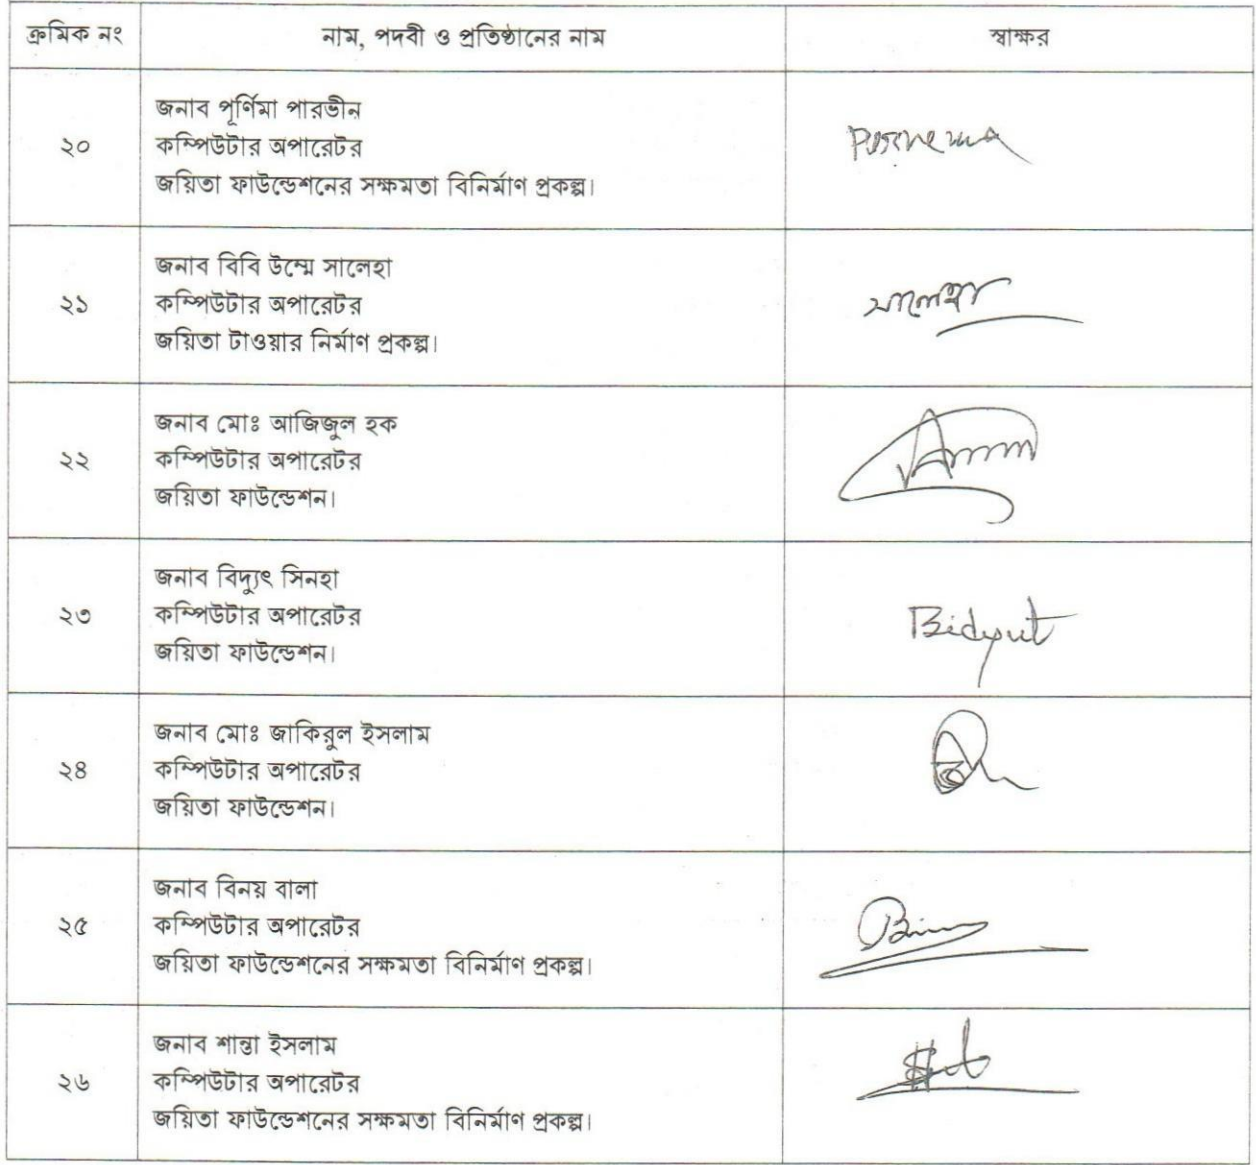 ক্রমিক নং নাম, পদবী ও প্রতিষ্ঠানের নাম স্বাক্ষর
জনাব পূর্ণিমা পারভীন
২০ কম্পিউটার অপারেটর Purnema
জয়িতা ফাউন্ডেশনের সক্ষমতা বিনির্মাণ প্রকল্প।
জনাব বিবি উম্মে সালেহা
২১ কম্পিউটার অপারেটর সালেহা
জয়িতা টাওয়ার নির্মাণ প্রকল্প।
জনাব মোঃ আজিজুল হক
২২ কম্পিউটার অপারেটর
জয়িতা ফাউন্ডেশন।
জনাব বিদ্যুৎ সিনহা
২৩ কম্পিউটার অপারেটর Bidyut
জয়িতা ফাউন্ডেশন।
জনাব মোঃ জাকিরুল ইসলাম
২৪ কম্পিউটার অপারেটর
জয়িতা ফাউন্ডেশন।
জনাব বিনয় বালা
২৫ কম্পিউটার অপারেটর
জয়িতা ফাউন্ডেশনের সক্ষমতা বিনির্মাণ প্রকল্প।
জনাব শান্তা ইসলাম
২৬ কম্পিউটার অপারেটর
জয়িতা ফাউন্ডেশনের সক্ষমতা বিনির্মাণ প্রকল্প।